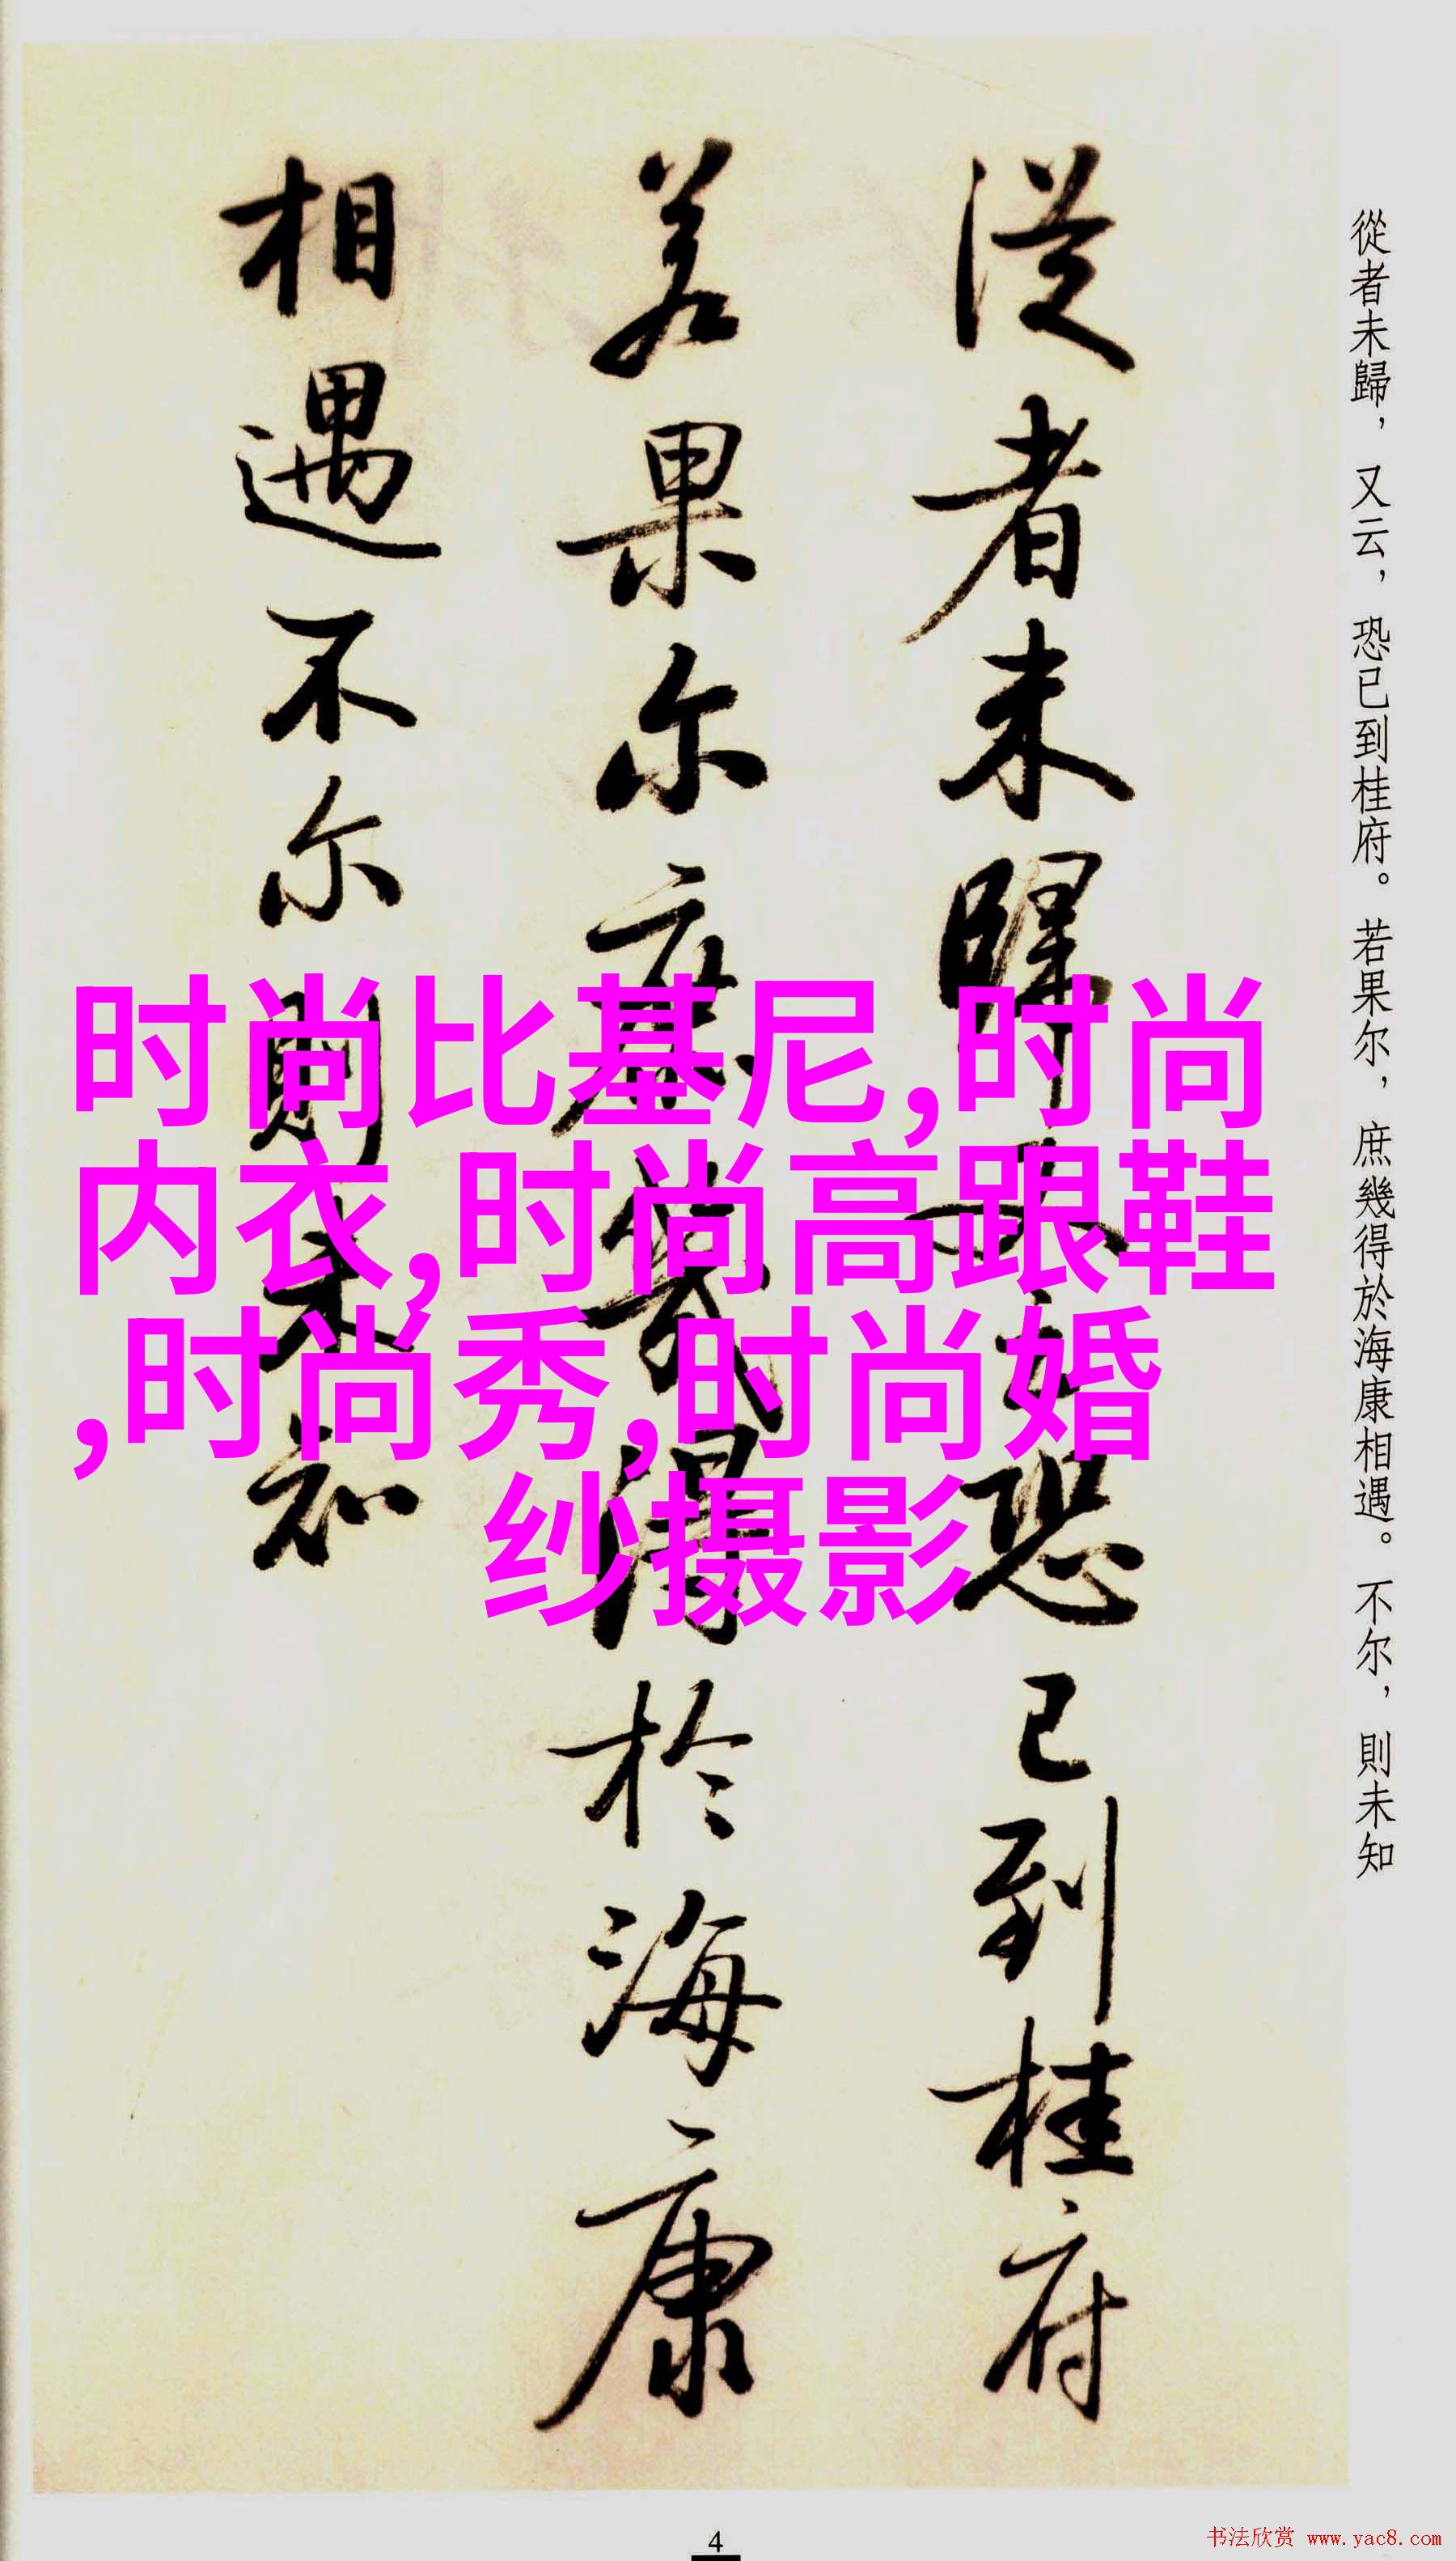 從者未歸，又云，恐已到桂府。若果尔，庶幾得於海康相遇。不尔，則未知
从者未歸又云恐已到桂府
若果尔庶幾得於海康
相遇不尔則未知
时尚比基尼,时尚
内衣,时尚高跟鞋
,时尚秀,时尚婚
纱摄影
4
书法欣赏 www.yac8.com